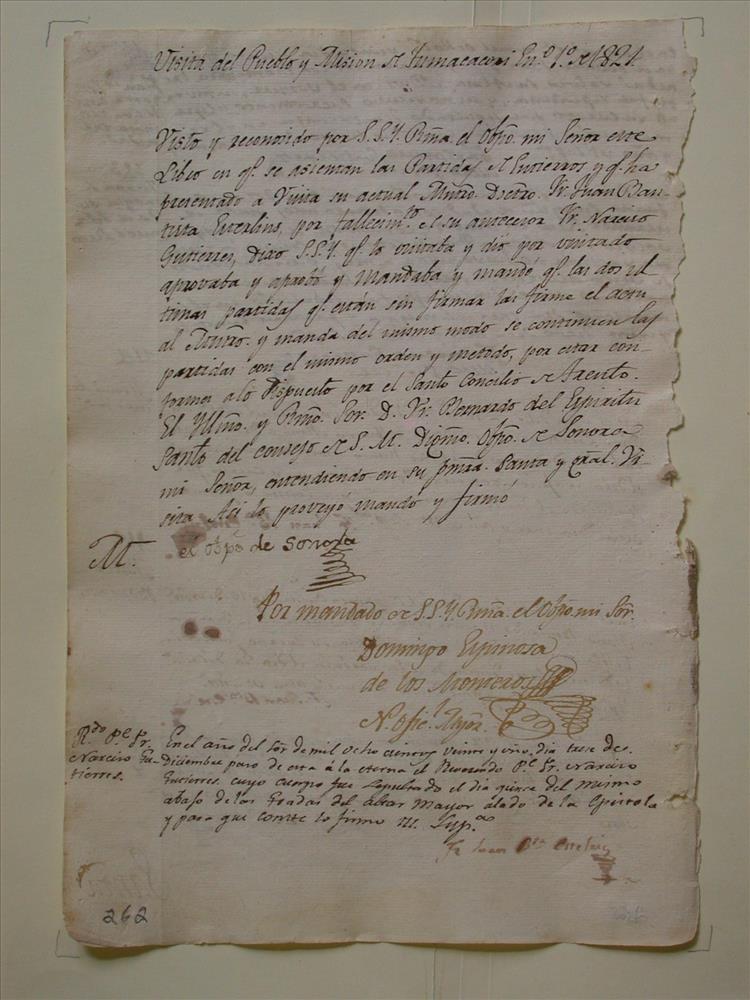 Visita del Pueblo y Mision de Tumacacori En.º 1.º de 1821.
Visto y reconocido por S.S.Y. Rma. el Obpo. mi Señor este
Libro en q.e se asientan las Partidas de Entierros y q.e ha
presentado a Visita su actual Mntro. Dctro. Fr. Juan Bau-
tista Estelrius, por fallecim.to de su antecesor Fr. Narciso
Gutierrez, Dixo S.S.Y. q.e lo visitaba y dio por visitado
aprovaba y aprobó y Mandaba y mandó q.e las dos ul
timas partidas q.e están sin firmar las firme el actu
al Mntro. y manda del mismo modo se continuen las
partidas con el mismo orden y metodo, por estar con-
formes a lo dispuesto por el Santo Concilio de Trento.
El Yllmo. y Rmo. Sor. D. Fr. Bernardo del Espiritu
Santo del consejo de S. M. Digmo. Obpo. de Sonora
mi Señor, entendiendo en su pmra. Santa y gral. Vi-
sita Asi lo proveyó mandó y firmó
M. el Obpo de Sonora
Por mandado de S.S.Y. Rma. el Obpo. mi Sor.
Domingo Espinosa
de los Monteros
N. Ofic.l Mayor
R.do P.e Fr.
Narciso Gu-
tierres.
En el año del Sor. de mil ocho cientos veinte y uno, dia trece de
Diciembre paso de esta á la eterna el Reverendo P.e Fr. Narciso
Gutierres, cuyo cuerpo fue sepultado el dia quince del mismo
abajo de las gradas del altar mayor al lado de la Epistola
y para que conste lo firmo ut Sup.a
Fr. Juan B.ta Estelric
262